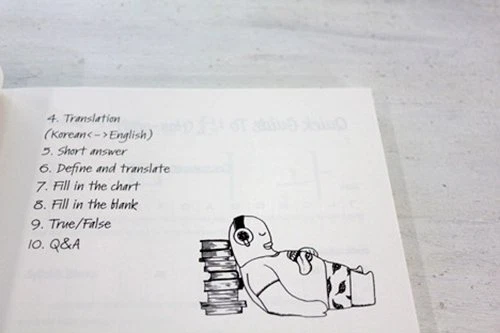 4. Translation
(Korean<->English)
5. Short answer
6. Define and translate
7. Fill in the chart
8. Fill in the blank
9. True/False
10. Q&A